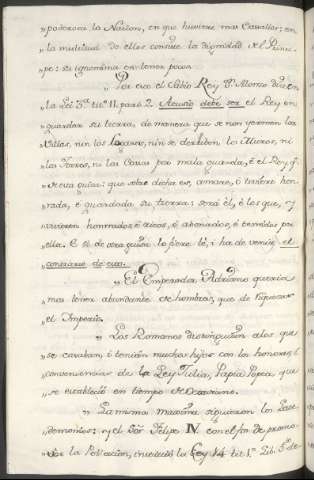 „poderosa la Nacion, en que huviere mas Cavallos: en
„la multitud de ellos consiste la dignidad del Princi-
„pe: su ignominia en tener pocos.
„Por eso el Sabio Rey Dn. Alonso dice en
„la Lei 3ª titº 11. partª 2. Acucioso debe ser el Rey en
„guardar su tierra, de manera que se non yermen las
„Villas, nin los Logares, nin se derriben los Muros, ni
„las Torres, ni las Casas por mala guarda, é el Rey q.
„de esta guisa: que sobre dicha es, amare, é toviere hon-
„rada, é guardada su tierra: será él, é los que, y
„vivieren honrrados é ricos, é abonados, é temidos por
„ella. E si de otra guisa lo ficiere lé, i ha de venir, el
„contrario de esto.
„El Emperador Adriano queria
„mas tener abundante de hombres, que de riquezas
„el Imperio.
„Los Romanos distinguian alos que
„se casaban, é tenian muchos hijos con los honores, é
„conveniencias de la Ley Julia, Papia Popea, que
„se estableció en tiempo de Octaviano.
„La misma maxima siguieron los
„y el Sor. Felipe IV con el fin de promo-
„ver la Poblacion, la Ley 14 titº 1º Lib. 5º de